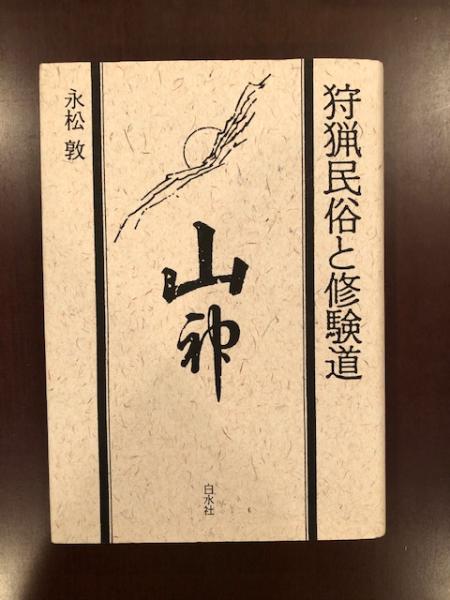 狩猟民俗と修験道
山神
白水社
永松 敦